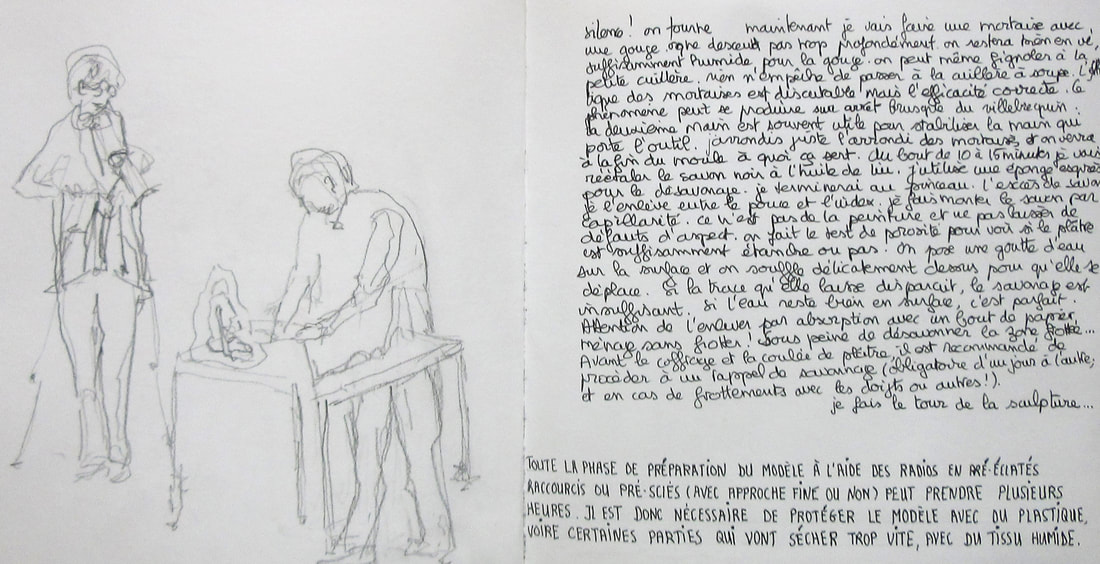 silence ! on tourne maintenant je vais faire une mortaise avec
une gouge. on ne descend pas trop profondément. on restera bien en vé,
suffisamment humide pour la gouge. on peut même fignoler à la
petite cuillère. rien n'empêche de passer à la cuillère à soupe. L'
tique des mortaises est discutable mais l'efficacité correcte. Ce
phénomène peut se produire sur arrêt brusque du villebrequin.
la deuxième main est souvent utile pour stabiliser la main qui
porte l'outil. j'arrondis juste l'arrondi des mortaises et on verra
à la fin du moule à quoi ça sert. Au bout de 10 à 15 minutes je vais
réétaler le savon noir à l'huile de lin. J'utilise une éponge
pour le désavonage. je terminerai au pinceau. L'excès de savon
je l'enlève entre le pouce et l'index. je fais monter le savon par
capillarité. ce n'est pas de la peinture et ne pas laisser de
défauts d'aspect. on fait le test de porosité pour voir si le plâtre
est suffisamment étanche ou pas. On pose une goutte d'eau
sur la surface et on souffle délicatement dessus pour qu'elle se
déplace. Si la trace qu'elle laisse disparait, le savonage est
insuffisant. Si l'eau reste bien en surface, c'est parfait.
Attention de l'enlever par absorption avec un bout de papier
ménage sans frotter ! Sous peine de désavonner la zone frottée...
Avant le coffrage et la coulée de plâtre, il est recommandé de
procéder à un rappel de savonage (obligatoire d'un jour à l'autre;
et en cas de frottements avec les doigts ou autres !).
je fais le tour de la sculpture...
TOUTE LA PHASE DE PRÉPARATION DU MODÈLE À L'AIDE DES RADIOS EN PRÉ-ÉCLATÉS
RACCOURCIS OU PRÉ-SCIÉS (AVEC APPROCHE FINE OU NON) PEUT PRENDRE PLUSIEURS
HEURES. IL EST DONC NÉCESSAIRE DE PROTÉGER LE MODÈLE AVEC DU PLASTIQUE,
VOIRE CERTAINES PARTIES QUI VONT SÉCHER TROP VITE, AVEC DU TISSU HUMIDE.